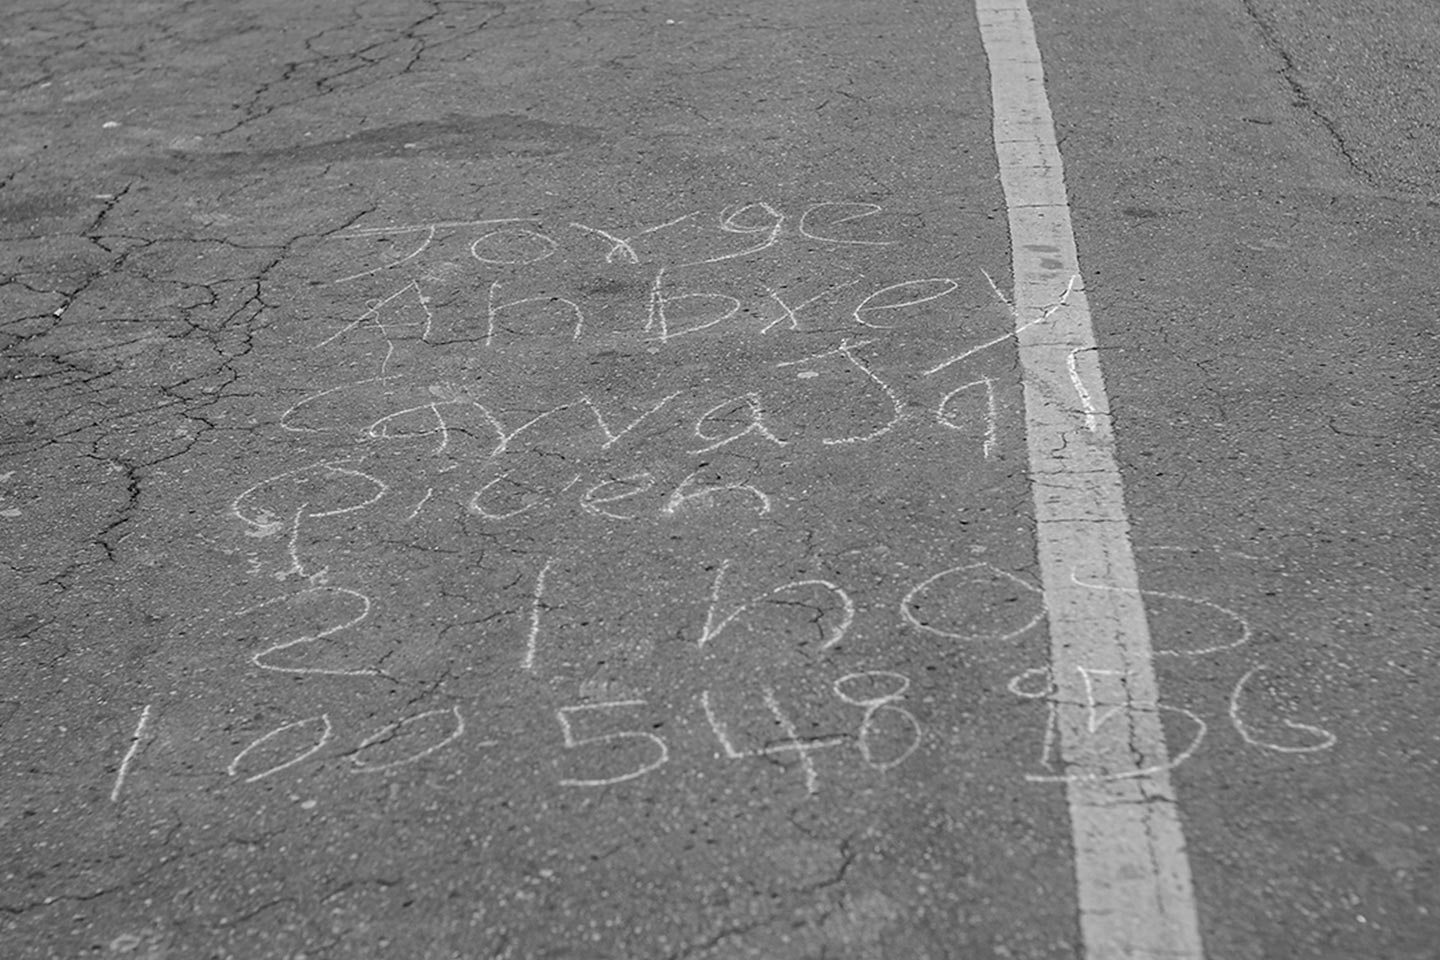 Jorge
Andrey
Carvajal
Picen
21 nos
100 548 956